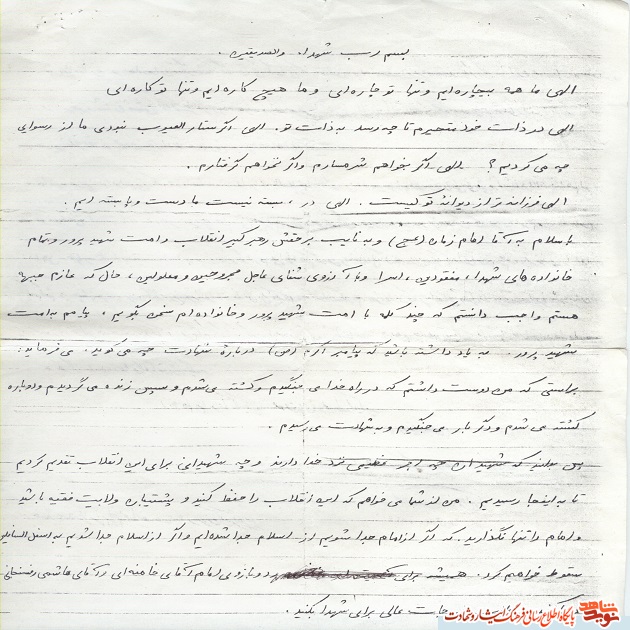 بسم رب شهداء والصدیقین.
الهی ما همه بیچاره ایم و تنها تو چاره ای و ما هیچ کاره ایم و تنها تو کاره ای
الهی در ذات خود متحیرم تا چه رسد به ذات تو. الهی اگر ستار العیوب نبودی ما از رسوایی
چه می کردیم؟ الهی اگر بخواهم شرمسارم و اگر نخواهم گرفتارم.
الهی فرزانه تر از دیوانۀ تو کیست. الهی در، بسته نیست ما دست و پا بسته ایم.
با سلام به آقا امام زمان (عج) و به نایب برحقش رهبر کبیر انقلاب و امت شهید پرور و تمام
خانواده های شهدا، مفقودین، اسرا و با آرزوی شفای عاجل مجروحین و معلولین، حال که عازم جبهه
هستم واجب دانستم که چند کلمه با امت شهید پرور و خانواده ام سخن بگویم، پیامم به امت
شهید پرور. به یاد داشته باشید که پیامبر اکرم (ص) دربارۀ شهادت چه می گوید. می فرماید:
براستی که من دوست داشتم که در راه خدا می جنگیدم و کشته می شدم و سپس زنده می گردیدم و دوباره
کشته می شدم و دگر بار می جنگیدم و به شهادت می رسیدم.
پس بدانید که شهیدان چه اجر عظیمی نزد خدا دارند و چه شهیدانی برای این انقلاب تقدیم کردیم
تا به اینجا رسیدیم. من از شما می خواهم که این انقلاب را حفظ کنید و پشتیبان ولایت فقیه باشید
و امام را تنها نگذارید. که اگر از امام جدا شویم از اسلام جدا شده ایم و اگر از اسلام جدا شویم به اسفل السافلین
سقوط خواهیم کرد. همیشه برای دو بازوی امام آقای خامنه ای و آقای هاشمی رفسنجانی
درجات عالی برای شهدا بکنید.
نوید شاهد
پایگاه اطلاع رسانی فرهنگ ایثار و شهادت